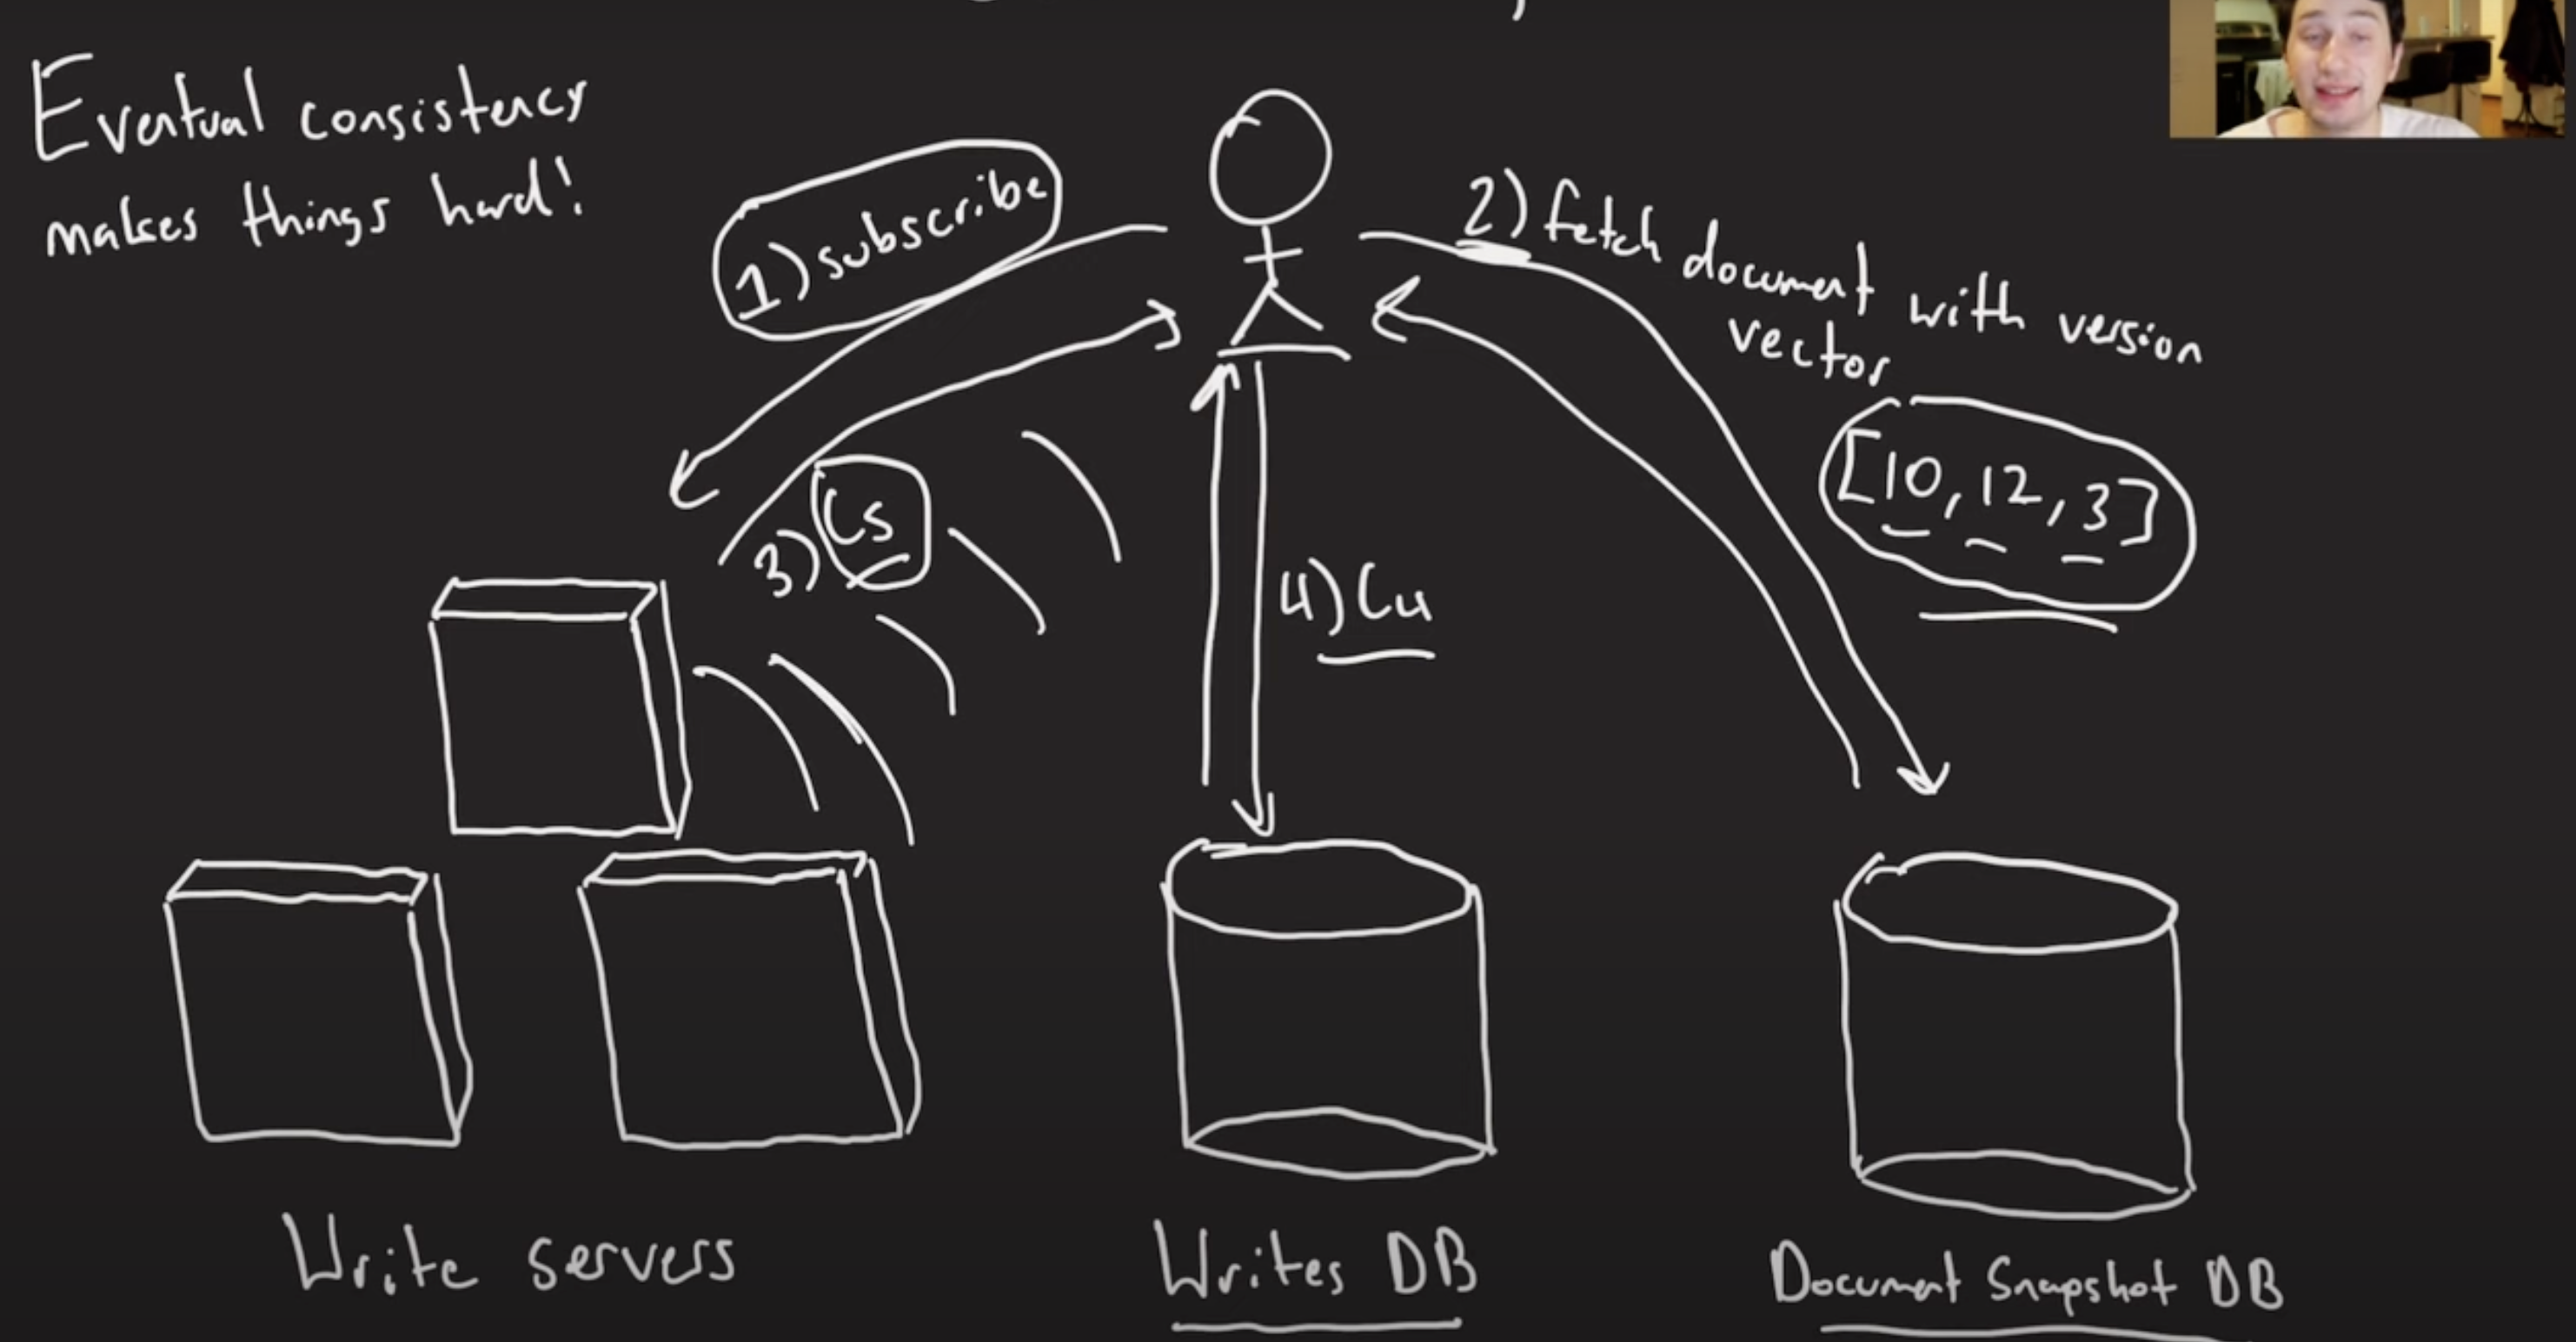 Eventual consistency
makes things hard!
1) subscribe
2) fetch document with version
vector
[10, 12, 3]
3) Cs
4) Cu
Write servers
Writes DB
Document Snapshot DB